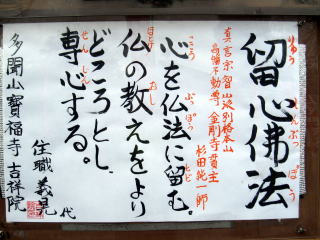 留心佛法
りゅう しん ぶっ ぽう
真言宗智山派別格本山
高幡不動尊 金剛寺貫主
杉田純一師
心を仏法に留む。
こころ ぶっぽう とど
仏の教えをより
ほとけ おし
どころとし、
専心する。
せんしん
住職 義晃 代
多聞山寳福寺吉祥院